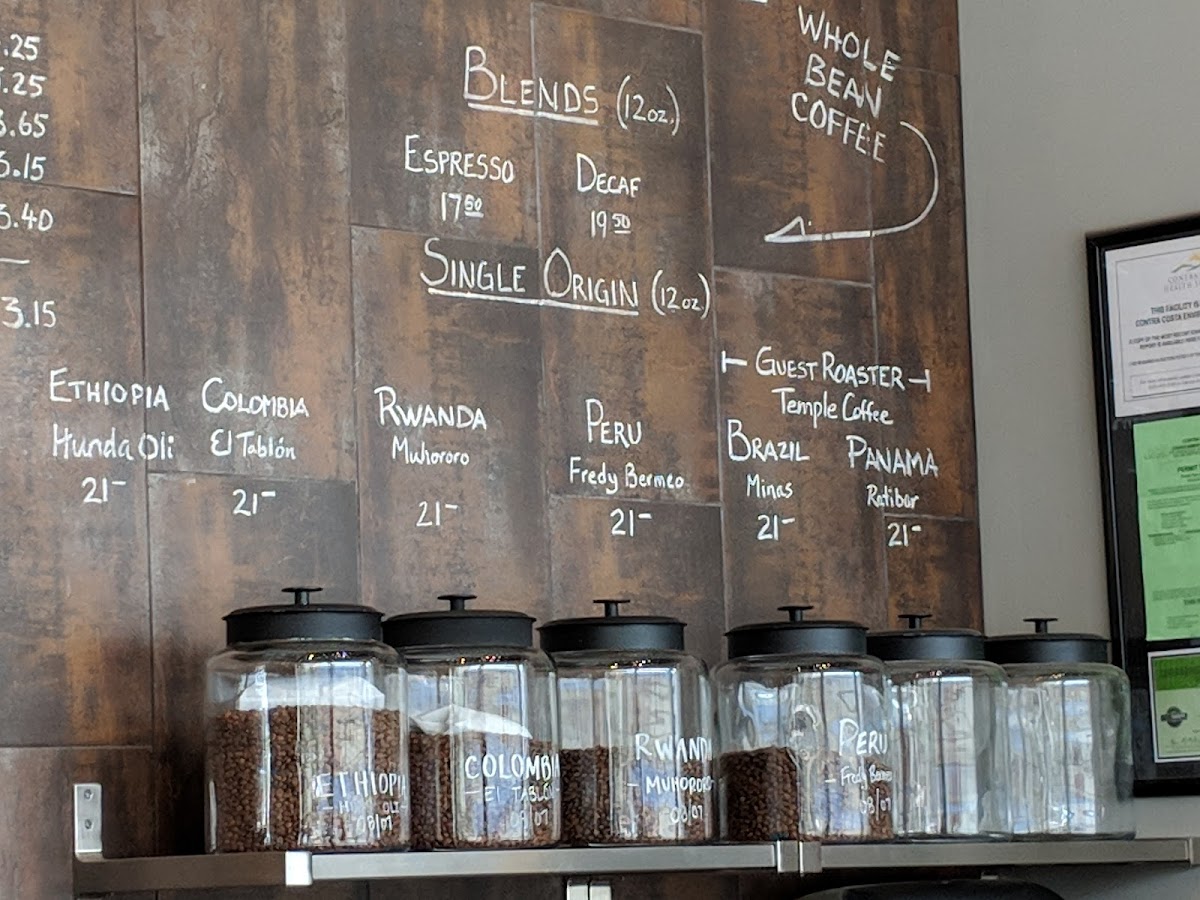 .25
.25
3.65
3.15
3.40
3.15
WHOLE
BEAN
COFFEE
BLENDS (12oz.)
ESPRESSO
17 50
DECAF
19 50
SINGLE ORIGIN (12oz)
ETHIOPIA
Hunda Oli
21-
COLOMBIA
El Tablón
21-
RWANDA
Muhororo
21-
PERU
Fredy Bermeo
21-
GUEST ROASTER
Temple Coffee
BRAZIL
Minas
21-
PANAMA
Ratibor
21-
ETHIOPIA
08/07
COLOMBIA
- El TABLÓN
08/07
RWANDA
- MUHORORO
08/07
PERU
- Fredy Bermeo
08/07
THIS FACILITY IS
CONTRA COSTA ENVI